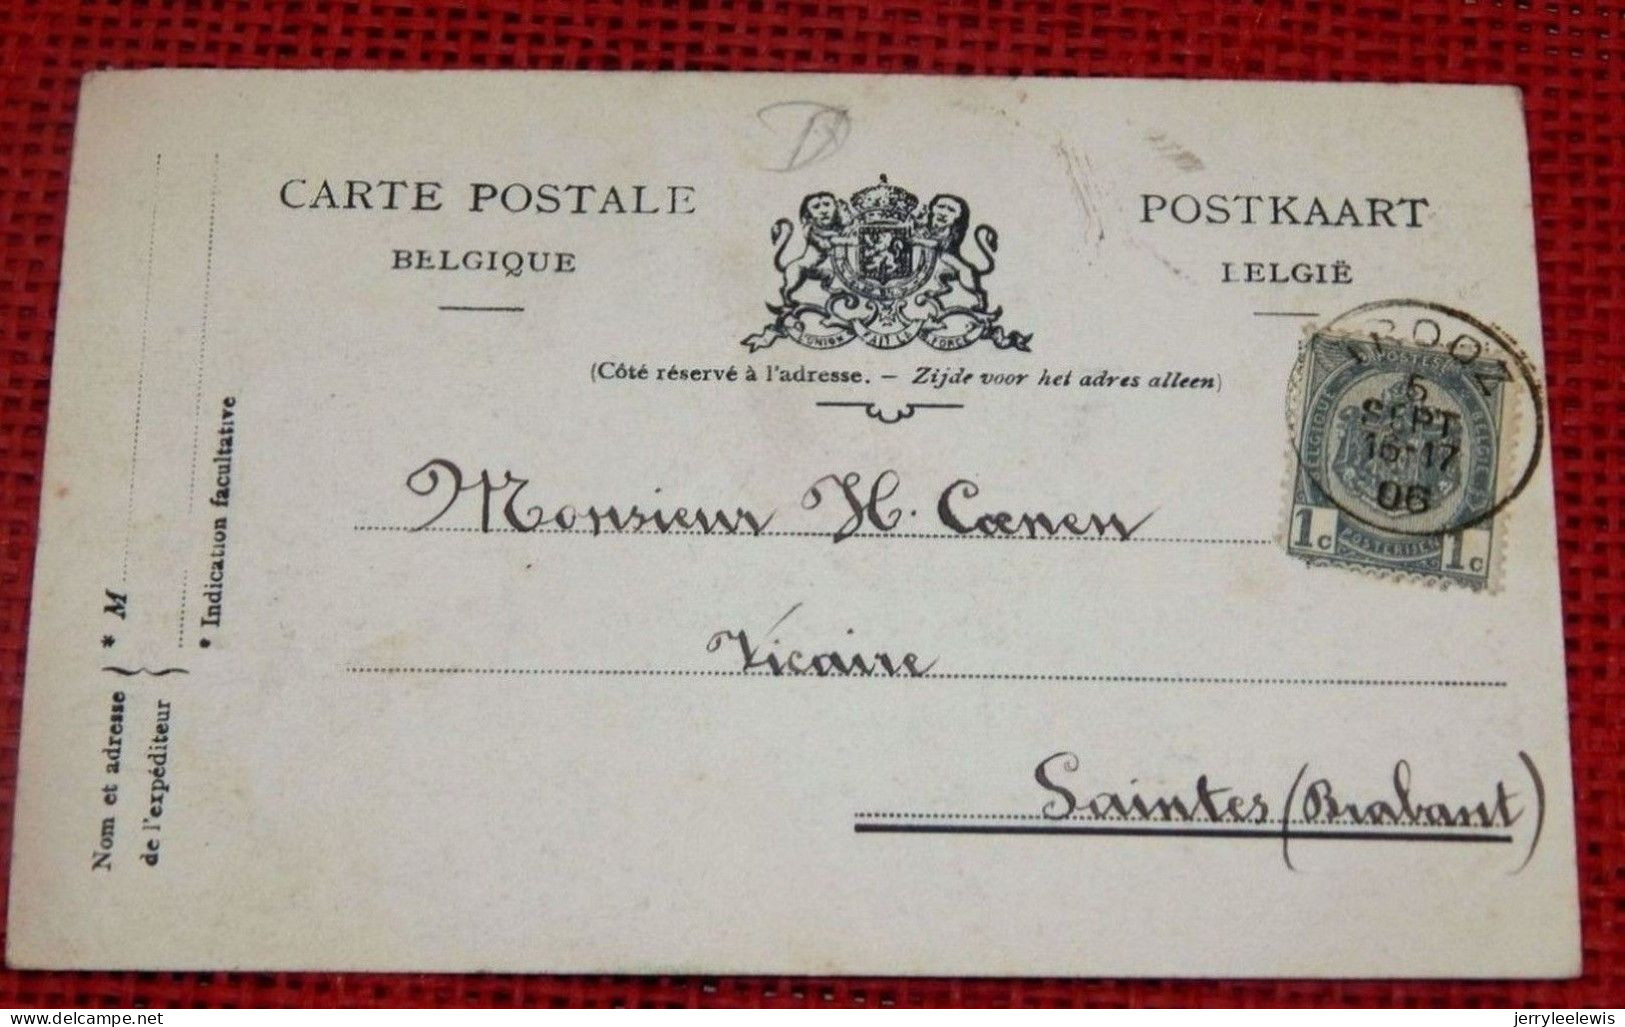 CARTE POSTALE
BELGIQUE
POSTKAART
BELGIË
L'UNION FAIT LA FORCE
(Côté réservé à l'adresse. — Zijde voor het adres alleen)
TROOZ
5
SEPT
16-17
06
POSTES
BELGIQUE
BELGIË
1c
POSTERIJEN
1c
Monsieur H. Cœnen
Vicaire
Saintes (Brabant)
Nom et adresse
de l'expéditeur
* M
* Indication facultative
jerryleelewis